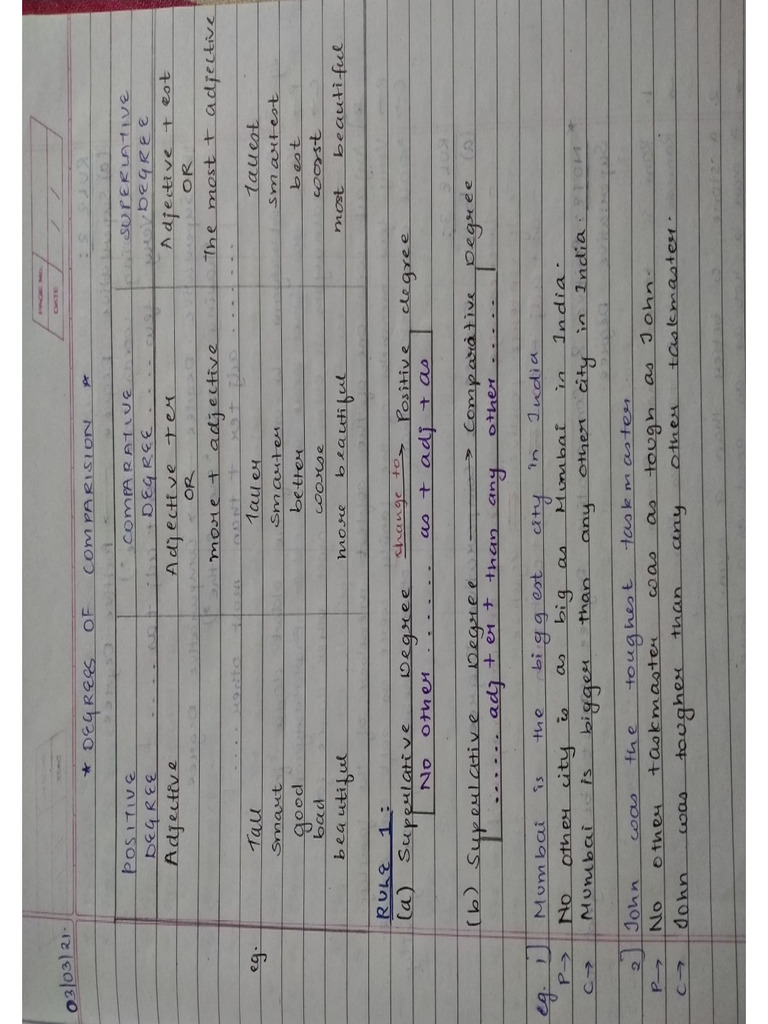 PAGE NO.
DATE / /
03/03/21.
* DEGREES OF COMPARISION *
POSITIVE COMPARATIVE SUPERLATIVE
DEGREE DEGREE DEGREE
Adjective Adjective + er Adjective + est
OR OR
more + adjective The most + adjective
eg. Tall Taller Tallest
smart smarter smartest
good better best
bad worse worst
beautiful more beautiful most beautiful
RULE 1:
(a) Superlative Degree change to → Positive degree
No other ...... as + adj + as
(b) Superlative Degree → Comparative Degree
...... adj + er + than any other ......
eg. 1] Mumbai is the biggest city in India
P→ No other city is as big as Mumbai in India.
C→ Mumbai is bigger than any other city in India.
2] John was the toughest taskmaster
P→ No other taskmaster was as tough as John.
C→ John was tougher than any other taskmaster.